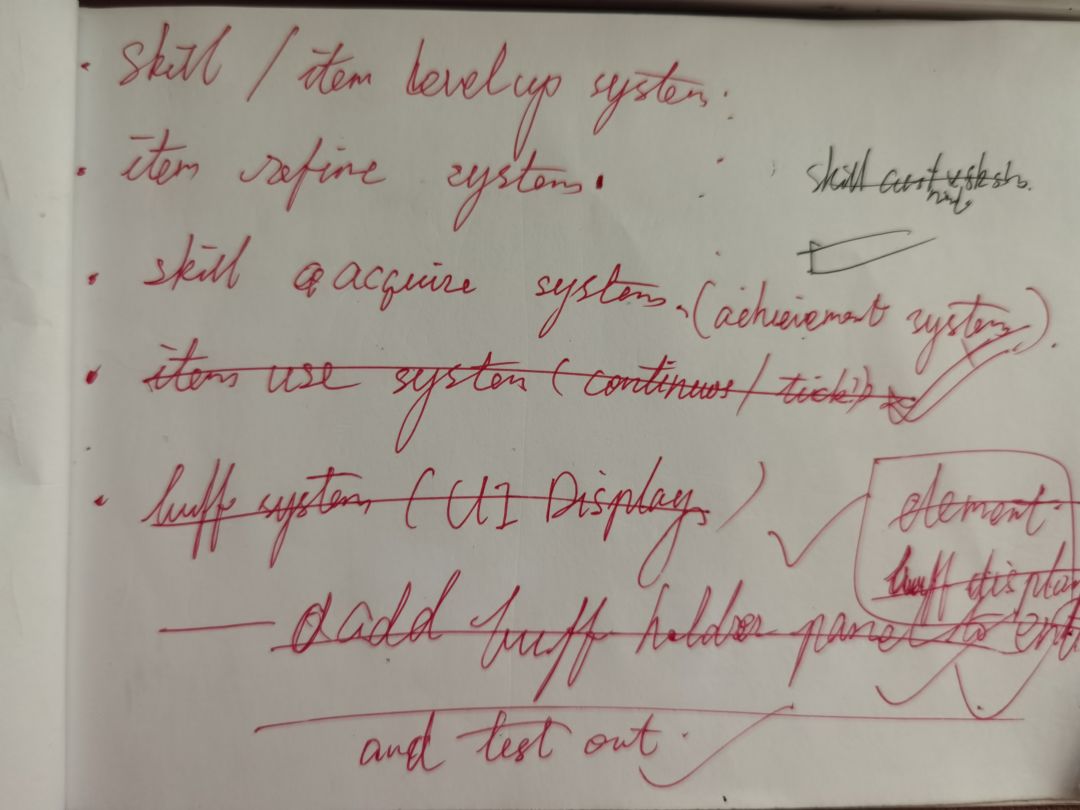 • skill / item level up system.
• item refine system.
skill
• skill acquire system. (achievement system).
• item use system (continuos / tick)
• buff system (UI Display)
element
buff display
— add buff holder panel to
and test out.